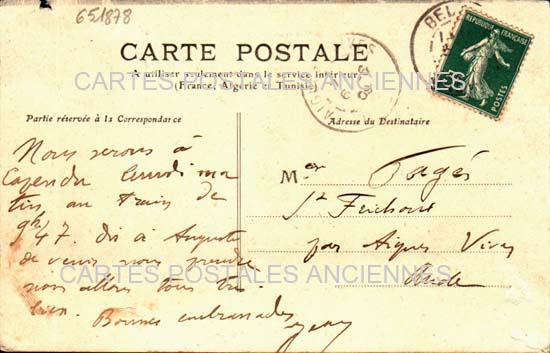 651878
CARTE POSTALE
A utiliser seulement dans le service intérieur
(France, Algérie et Tunisie)
CARTES POSTALES ANCIENNES
Partie réservée à la Correspondance
Adresse du Destinataire
REPUBLIQUE FRANÇAISE
POSTES
BEL
AIG
Nous serons à
lundi ma
tin au train de
9h47. dis à Auguste
de venir nous prendre
nous allons tous tres
bien.
Bonnes embrassades
Mr Pagés
par Aigues Vives
Aude
CARTES POSTALES ANCIENNES